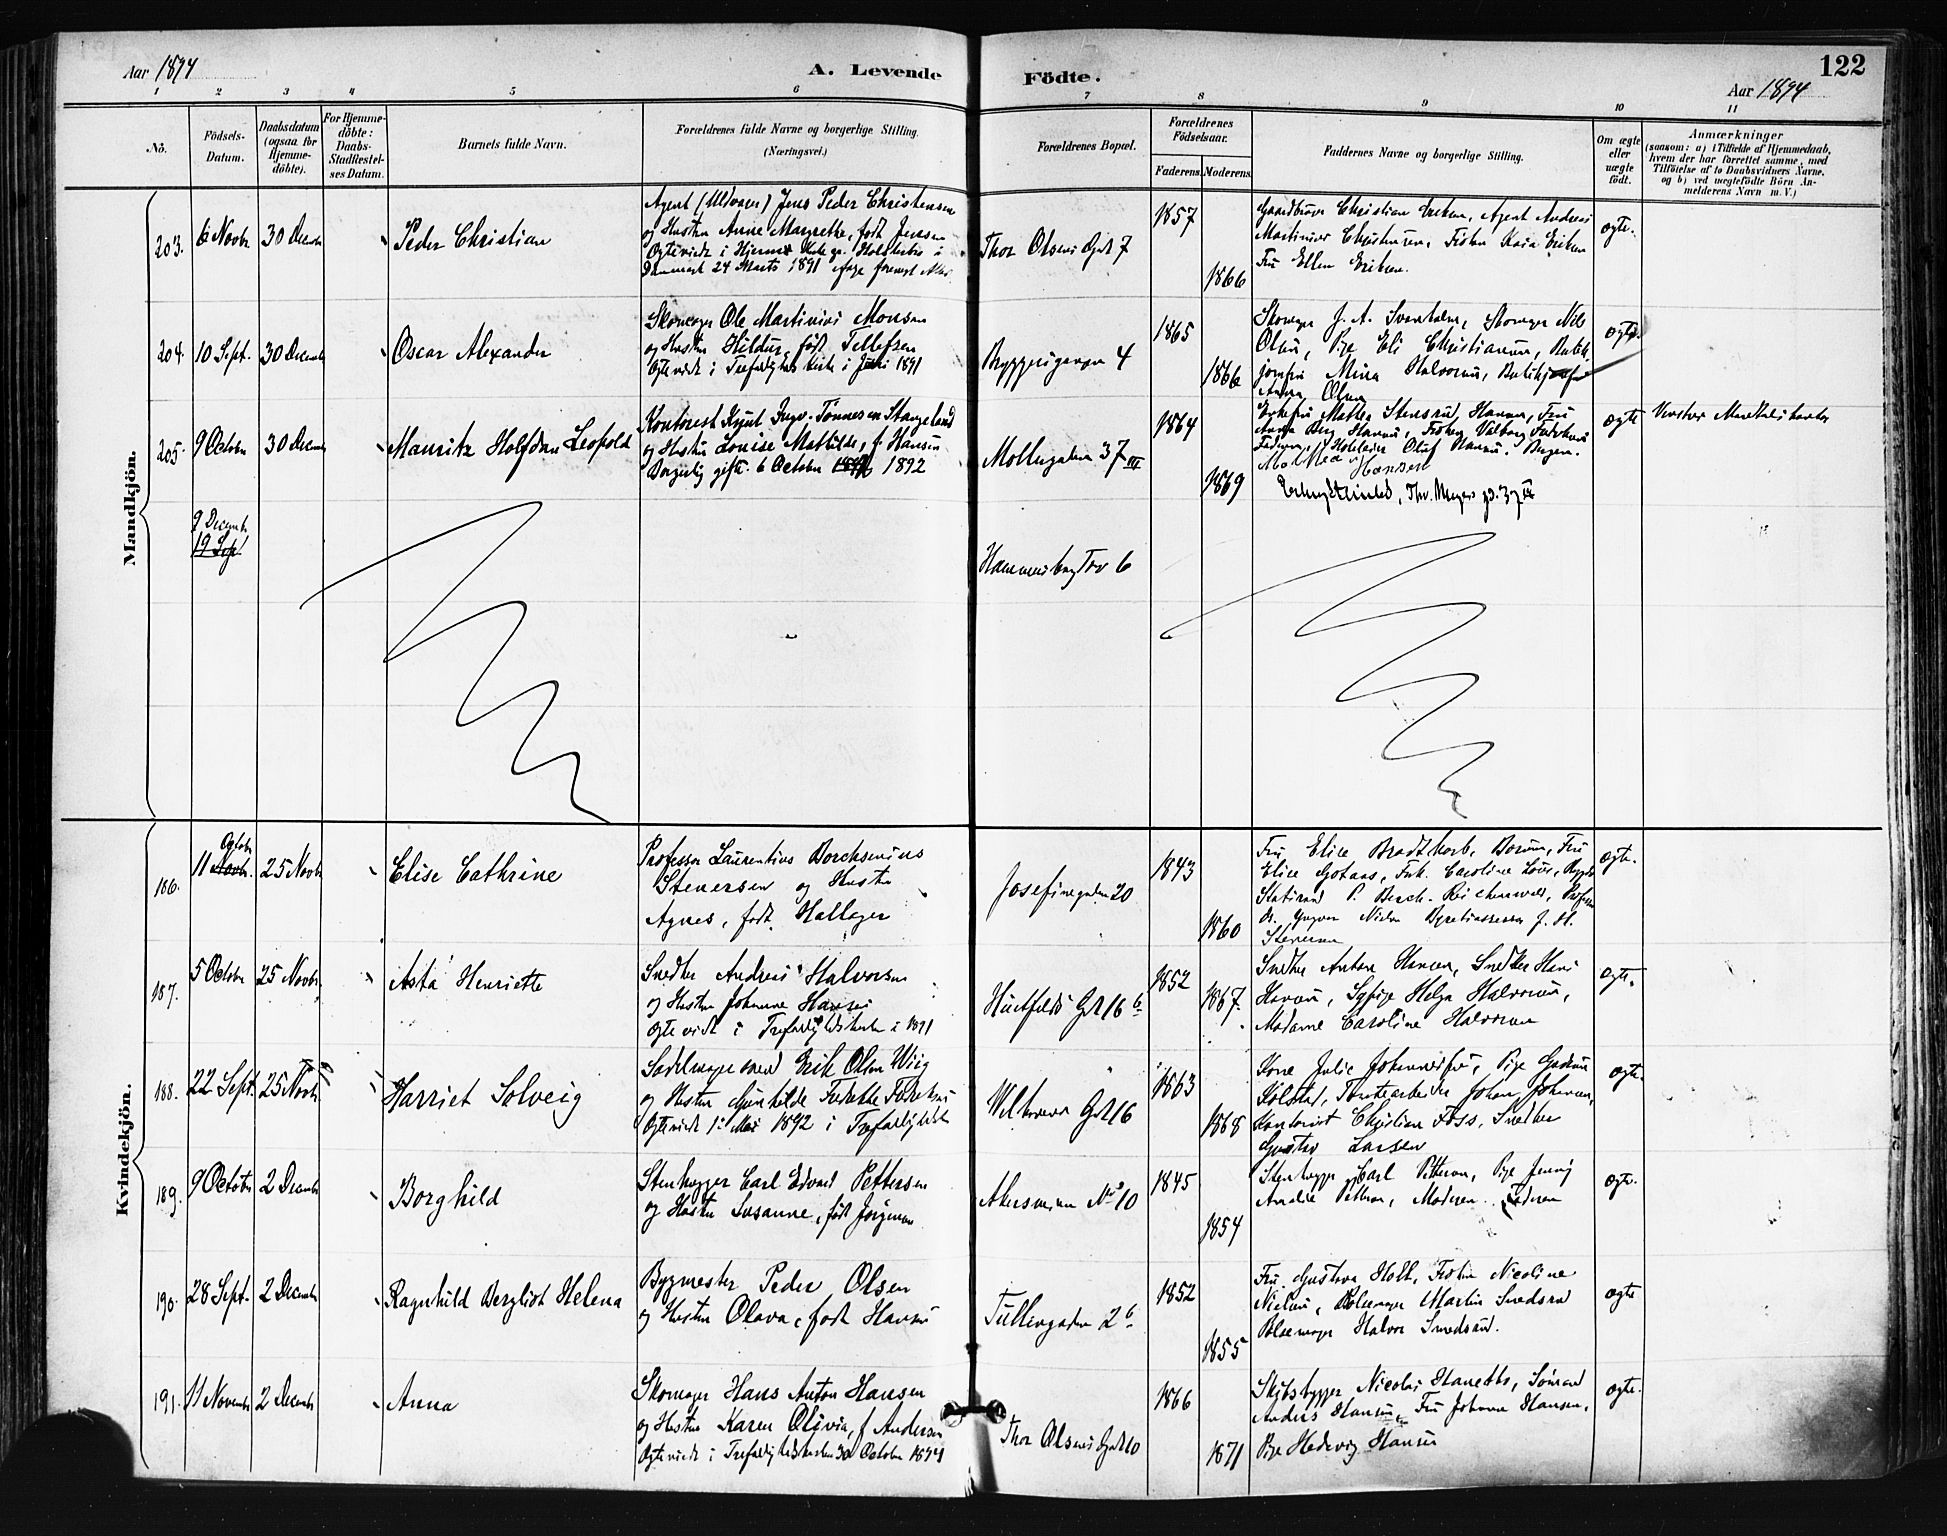 Aar 1894
A. Levende
Fødte.
122
Aar 1894
1 2 3 4 5 6 7 8 9 10 11
No.
Fødsels-Datum.
Daabsdatum (ogsaa for Hjemme-døbte).
For Hjemme-døbte: Daabs-Stadfæstel-ses Datum.
Barnets fulde Navn.
Forældrenes fulde Navne og borgerlige Stilling.
(Næringsvei.)
Forældrenes Bopæl.
Forældrenes Fødselsaar.
Faderens. Moderens.
Faddernes Navne og borgerlige Stilling.
Om ægte eller uægte født.
Anmærkninger
(saasom: a) i Tilfælde af Hjemmedaab, hvem der har forrettet samme, med Tilføielse af to Daabsvidners Navne. og b) ved uægtefødte Børn An-melderens Navn m. V.)
Mandkjøn.
203. 6 Novbr 30 Decmbr
Peder Christian
Agent (Uldvarer) Jens Peder Christensen
og Hustru Anne Margrethe, født Jensen
Danmark 24 Marts 1891
Thor Olsens Gade 7
1857
1866
Christian Eriksen, Agent Andreas
Martinius Christensen, Frøken Kaia Eriksen
Fru Ellen Eriksen.
ægte.
204. 10 Sept. 30 Decembr
Oscar Alexander
Skomager Ole Martinius Monsen
og Hustru Hildur, født Tellefsen
Ægteviede i Trefoldigheds Kirke i Juni 1891
Bryggerigaden 4
1865
1866
Skomager J. A. Svanholm, Skomager Nils
Olsen, Pige Eli Christiansen, Butik-
jomfru Mina Halvorsen, Butikjomfru
Anna Olsen
ægte.
205. 9 Octobr 30 Decembr
Mauritz Halfdan Leopold
Kontorist Knut Ingv. Tønnesen Stangeland
og Hustru Louise Mathilde, f. Hansen
Borgerlig gifte. 6 October 1892
Møllergaden 37 III
1864
1869
Enkefru Mathea Stensrud Hansen, Fru
Anna Berg Hansen, Frøken Valborg Fredriksen
Faderen, Hoteleier Oluf Hansen. Bergen.
Mathea Hansen
Thv. Meyers gd. 37 IV
ægte
9 Decembr
19 Sept
Hammersborg Torv 6
Kvindekjøn.
186. 11 Octobr Novbr. 25 Novbr
Elise Cathrine
Professor Laurentius Borchsenius
Stenersen og Hustru
Agnes, født Hallager
Josefinegaden 20
1843
1860
Fru Elise Bradtkorb, Borum, Fru
Elise Gotaas, Frk. Caroline Løvs,
P. Birch-Reichenwald, Professor
Dr. Yngvar Nielsen J. H.
Stenersen
ægte.
187. 5 Octobr 25 Novbr.
Asta Henriette
Snedker Andreas Halvorsen
og Hustru Johanne Hansen
Ægteviede i Trefoldighedskirken i 1891
Huitfelds Gd. 16 b
1852
1867.
Snedker Antone Hansen, Snedker Hans
Hansen, Sypige Helga Halvorsen,
Madame Caroline Halvorsen
ægte.
188. 22 Sept. 25 Novbr
Harriet Solveig
Sadelmagersvend Erik Olsen Wiig
og Hustru Gunhilde Fredrikke Fredriksen
Ægteviede 1ste Mai 1892 i Trefoldighedsk
Welhavens Gd. 16
1863
1868
Kone Julie Johannesen, Pige Gudrun
Kolstad, Johan Johansen,
Kontorist Christian Foss, Snedker
Gustav Larsen
ægte.
189. 9 Octobr 2 Decembr
Borghild
Stenhugger Carl Edvard Pettersen
og Hustru Susanne, født Jørgensen
Akersveien No 10
1845
1854
Stenhugger Carl Pettersen, Pige Jenny
Amalie Pettersen, Moderen. Faderen
ægte.
190. 28 Sept. 2 Decembr
Ragnhild Bergliot Helena
Bygmester Peder Olsen
og Hustru Olava, født Hansen
Tullinsgaden 2 b
1852
1855
Fru Gustava Holt, Frøken Nicoline
Nielsen, Pølsemager Martin Smedsrud
Pølsemager Halvor Smedsrud.
ægte
191. 11 Novembr 2 Decembr
Anna
Skomager Hans Anton Hansen
og Hustru Karen Olivia, f. Andersen
Ægteviede i Trefoldighedskirken 30 October 1894
Thor Olsens Gade 10
1866
1871
Skibsbygger Nicolai Hansen, Sømand
Anders Hansen, Fru Johanne Hansen.
Pige Hedevig Hansen
ægte.